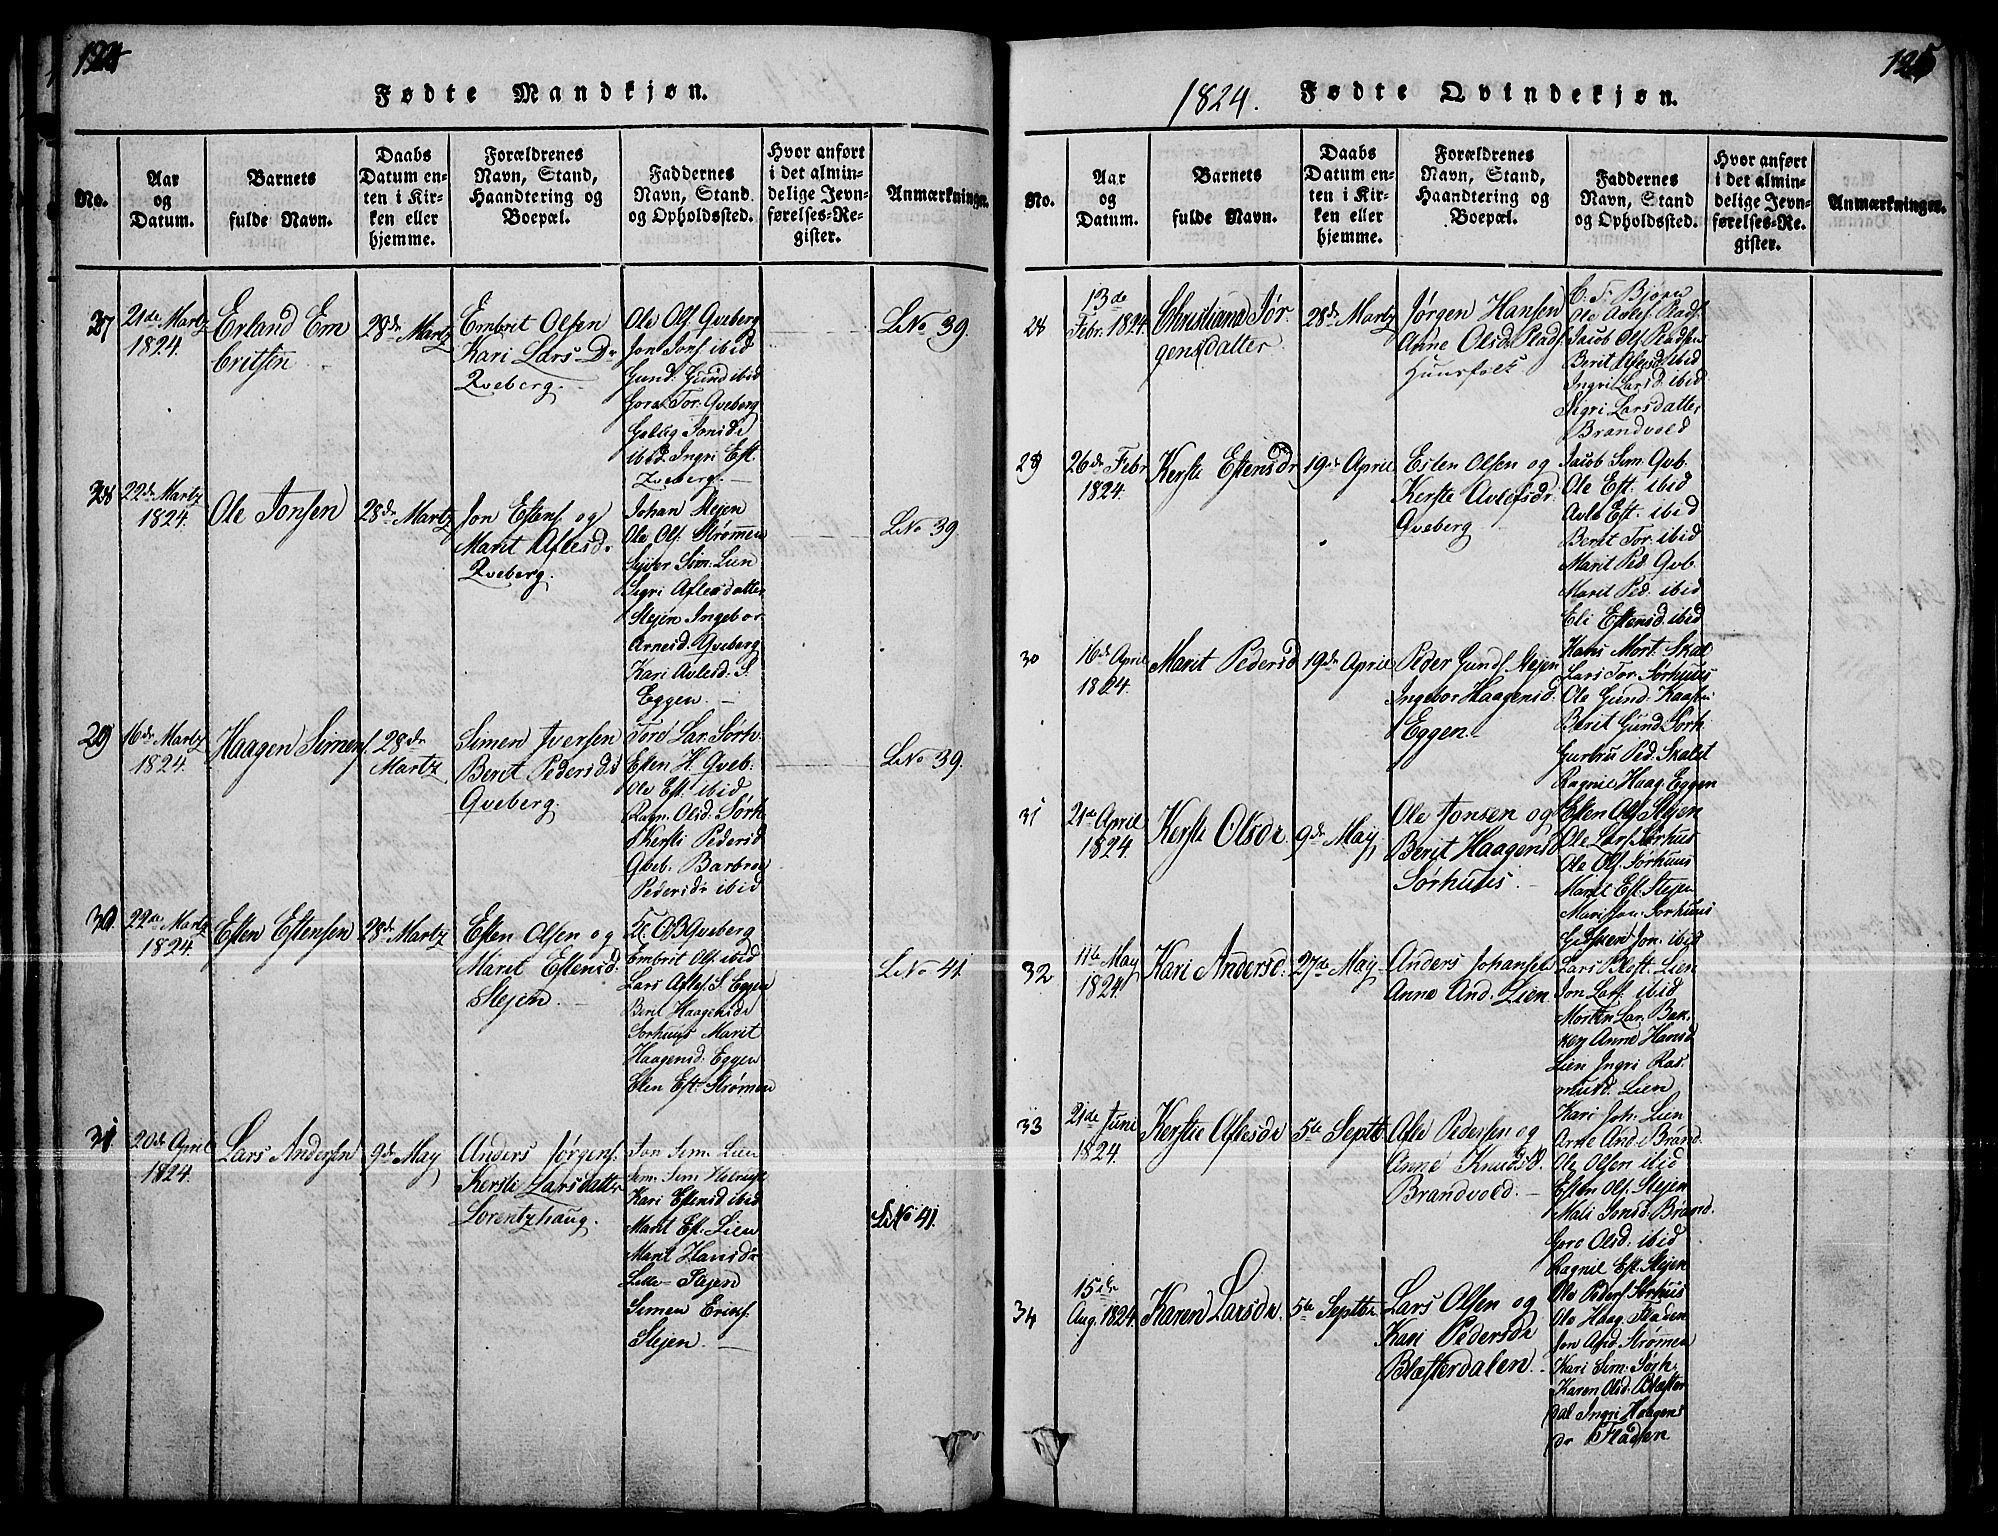 124
Fødte Mandkjøn.
No.
Aar
og
Datum.
Barnets
fulde Navn.
Daabs
Datum en-
ten i Kir-
ken eller
hjemme.
Forældrenes
Navn, Stand,
Haandtering og
Boepæl.
Faddernes
Navn, Stand
og Opholdssted.
Hvor anført
i det almin-
delige Jevn-
førelses-Re-
gister.
Anmærkninger.
27
21de Martz
1824.
Erland Em
britsen
28de Martz
Embrit Olsen
Kari Lars Dr
Qveberg.
Ole Ols. Qveberg
Jon Jons. ibid
Gund. Gund ibid
Gora Tor. Qveberg
Jonsdr
ibid. Ingri Est.
Qveberg.
L. No 39
28
22de Martz
1824.
Ole Jonsen
28de Martz
Jon Estens. og
Marit Aflesdr
Qveberg.
Johan Stejen
Ole Ols. Strømen
Syver Sim. Lien
Sigri Aflesdatter
Stejen Ingebor
Arnesd. Qveberg
Kari Avlesd. S.
Eggen
L. No 39
29
16de Martz
1824.
Haagen Simens.
28de
Martz
Simen Iversen
Berit Pedersd.
Qveberg.
Tord Lar. Sørh.
Esten H. Qveb.
Ole Est. ibid
Ragn. Olsd. Sørh.
Kersti Pedersd
Qveb. Barbroe
Pedersdr ibid
L. No 39.
30
22de Martz
1824.
Esten Estensen
28de Martz
Esten Olsen og
Marit Estensd.
Stejen.
Qveberg
Embrit Ols. ibid
Lars Afles. S. Eggen
Berit Haagensdr
Sorhuus Marit
Haagensd. Eggen
Elen Est. Strømen
L. No 41
31
20de April
1824.
Lars Andersen
9de May
Anders Jørgens.
Kersti Larsdatter
Lorentzhaug.
Jon Sem. Lien
Kari Estensd ibid
Marit Est. Lien
Marit Hansdr
Lille Stejen
Simen Erics.
Stejen
L. No 41.
125
1824.
Fødte Qvindekjøn.
No.
Aar
og
Datum.
Barnets
fulde Navn.
Daabs
Datum en-
ten i Kir-
ken eller
hjemme.
Forældrenes
Navn, Stand,
Haandtering og
Boepæl.
Faddernes
Navn, Stand
og Opholdssted.
Hvor anført
i det almin-
delige Jevn-
førelses-Re-
gister.
Anmærkninger.
28
13de
Febr. 1824
Christiana Jør
gensdatter
28de Martz
Jørgen Hansen
Anne Olsdr Plads.
Huusfolk
C. F. Bjorn
Ole Avles. Plads.
Jacob Ols. Pladsen
Berit Aflesd ibid
Ingri Larsd. ibid
Sigri Larsdatter
Brandvold
29
26de Febr
1824.
Kerste Estensdr
19de April
Esten Olsen og
Kerste Avlesdr.
Qveberg
Jacob Sim. Qvb.
Ole Est. ibid
Avle Est. ibid
Berit Tor. ibid
Marit Ped Qvb.
Marit Ped. ibid
Eli Estensd. ibid
30
16de April
1824.
Marit Pedersd
19de April
Peder Gunds. Stejen
Ingebor Haagensd.
Eggen.
Hans Mort. Skal
Lars Tor. Sørhuus
Ole Gund.
Berit Gund. Sorh.
Gurbru Ped. Skalet
Ragnil Haag. Eggen
31
21de April
1824.
Kerste Olsdr
9de May
Ole Jonsen og
Berit Haagensd
Sørhuus.
Esten Ols Stejen
Ole Lars. Sørhuus
Ole Ols. Sorhuus
Marit Est. Stejen
Marit Jon. Sorhuus
Jon. ibid
32
11te May
1824.
Kari Andersd.
27de May
Anders Johansen
Anne And. Lien
Lars Lien
Jon Lars. ibid
Morten Lar. Bak
ken Anne Hansd
Lien Ingri Ras
musd. Lien
33
21de Juni
1824.
Kerstie Aflesdr
5te Septbr.
Afle Pedersen og
Anne Knudsd.
Brandvold.
Kari Joh. Lien
Arne And. Brand.
Ole Olsen ibid
Esten Ols. Stejen
Mali Jonsd. Brand.
Goro Olsd. ibid
Ragnil Est. Stejen
34
15de
Aug. 1824.
Karen Larsdr.
5te Septbr
Lars Olsen og
Kari Pedersdr
Blæsterdalen.
Ole Peders Sorhus
Ole Haag. Fladsen
Jon And. Strømen
Kari Sim. Sørh.
Karen Olsd. Blæster
dal Ingri Haagens
dr Fladsen